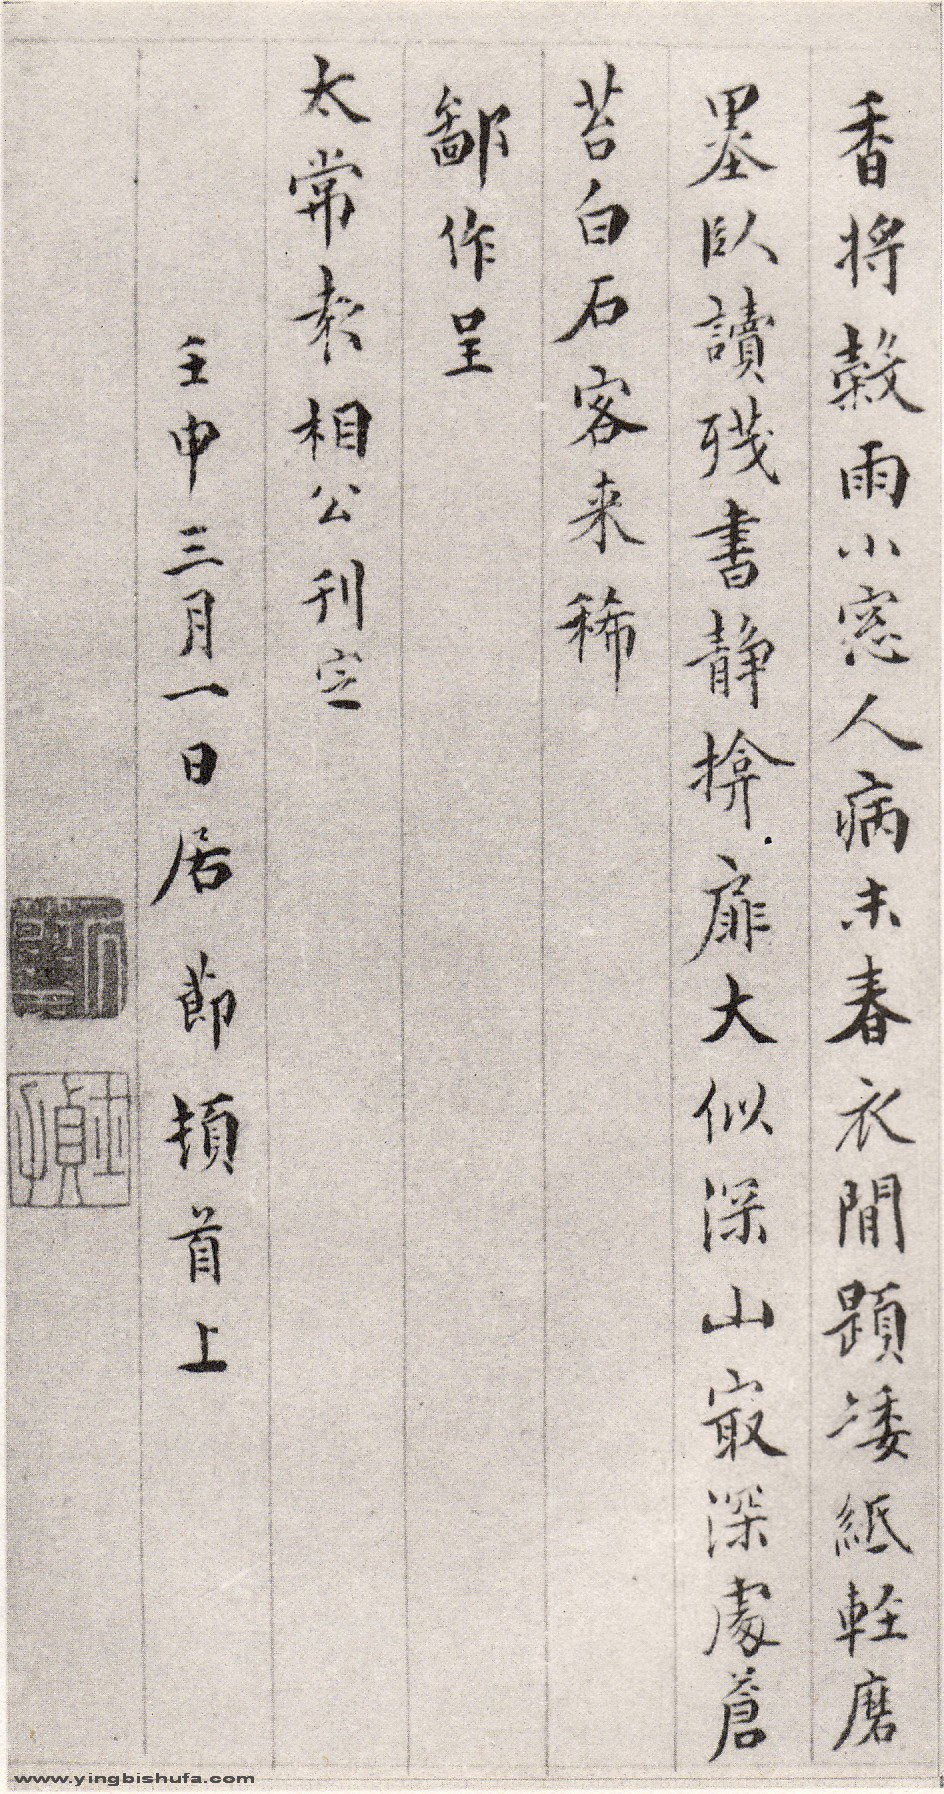 香將穀雨小窓人病未春衣閒題凄紙輕磨
墨臥讀殘書静揜扉大似深山寂深處蒼
苔白石客来稀
鄙作呈
太常相公刊定
壬申三月一日居節頓首上
www.yingbishufa.com